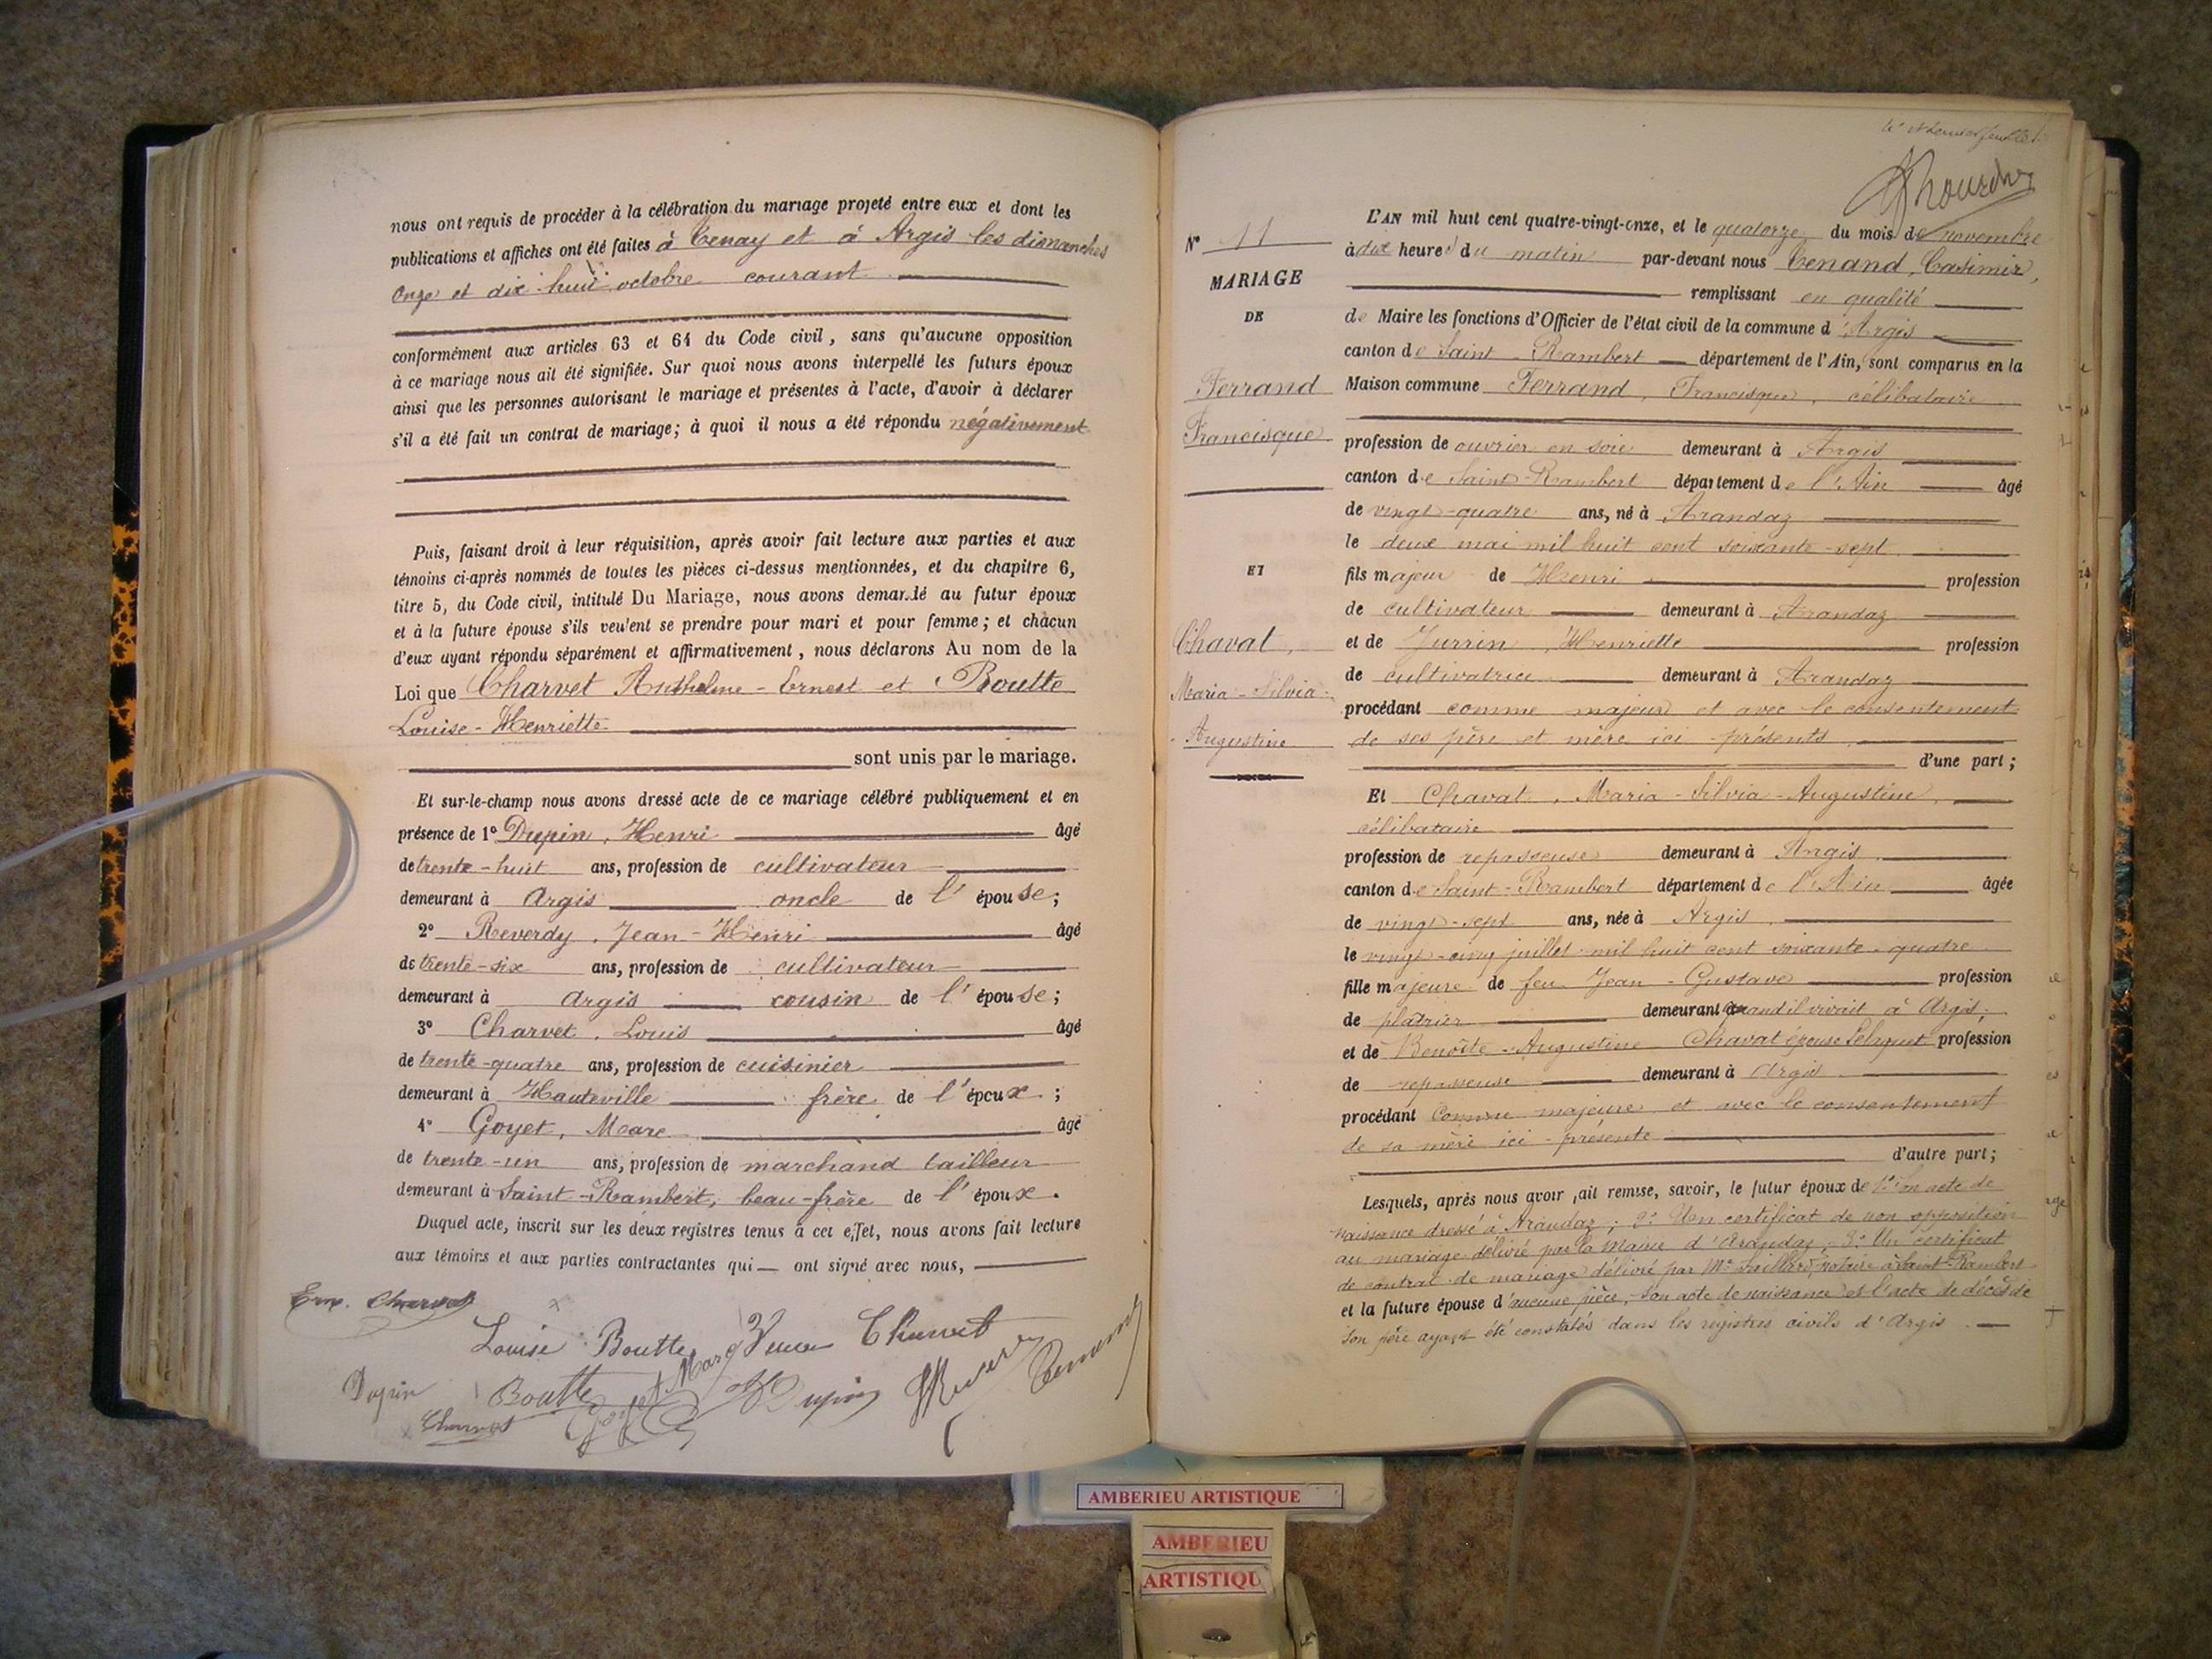 nous ont requis de procéder à la célébration du mariage projeté entre eux et dont les
publications et affiches ont été faites à Tenay et à Argis les dimanches
onze et dix-huit octobre courant
conformément aux articles 63 et 64 du Code civil, sans qu'aucune opposition
à ce mariage nous ait été signifiée. Sur quoi nous avons interpellé les futurs époux
ainsi que les personnes autorisant le mariage et présentes à l'acte, d'avoir à déclarer
s'il a été fait un contrat de mariage; à quoi il nous a été répondu négativement
Puis, faisant droit à leur réquisition, après avoir fait lecture aux parties et aux
témoins ci-après nommés de toutes les pièces ci-dessus mentionnées, et du chapitre 6,
titre 5, du Code civil, intitulé Du Mariage, nous avons demandé au futur époux
et à la future épouse s'ils veulent se prendre pour mari et pour femme; et chacun
d'eux ayant répondu séparément et affirmativement, nous déclarons Au nom de la
Loi que Charvet Anthelme-Ernest et Boutte
Louise-Henriette
sont unis par le mariage.
Et sur-le-champ nous avons dressé acte de ce mariage célébré publiquement et en
présence de 1° Dupin, Henri âgé
de trente-huit ans, profession de cultivateur
demeurant à Argis oncle de l'épouse;
2° Reverdy, Jean-Henri âgé
de trente-six ans, profession de cultivateur
demeurant à Argis cousin de l'épouse;
3° Charvet, Louis âgé
de trente-quatre ans, profession de cuisinier
demeurant à Hauteville frère de l'époux;
4° Goyet, Marc âgé
de trente-un ans, profession de marchand tailleur
demeurant à Saint-Rambert, beau-frère de l'époux.
Duquel acte, inscrit sur les deux registres tenus à cet effet, nous avons fait lecture
aux témoins et aux parties contractantes qui ont signé avec nous,
Ern. Charvet
Louise Boutte Charvet
Dupin Boutte Goyet Marc H Dupin
Charvet
N° 11
MARIAGE
DE
Ferrand
Francisque
ET
Chavat,
Maria-Silvia-
Augustine
L'AN mil huit cent quatre-vingt-onze, et le quatorze du mois de novembre
à dix heures du matin par-devant nous Tenand, Casimir,
remplissant en qualité
de Maire les fonctions d'Officier de l'état civil de la commune d'Argis
canton de Saint-Rambert département de l'Ain, sont comparus en la
Maison commune Ferrand, Francisque, célibataire
profession de ouvrier en soie demeurant à Argis
canton de Saint-Rambert département de l'Ain âgé
de vingt-quatre ans, né à Arandaz
le deux mai mil huit cent soixante-sept
fils majeur de Henri profession
de cultivateur demeurant à Arandaz
et de Jurrin, Henriette profession
de cultivatrice demeurant à Arandaz
procédant comme majeur et avec le consentement
de ses père et mère ici présents
d'une part;
Et Chavat, Maria-Silvia-Augustine,
célibataire
profession de repasseuse demeurant à Argis
canton de Saint-Rambert département de l'Ain âgée
de vingt-sept ans, née à Argis
le vingt-cinq juillet mil huit cent soixante-quatre
fille majeure de feu Jean-Gustave profession
de plâtrier demeurant quand il vivait à Argis;
et de Benoîte-Augustine Chavat épouse profession
de repasseuse demeurant à Argis
procédant comme majeure et avec le consentement
de sa mère ici-présente
d'autre part;
Lesquels, après nous avoir fait remise, savoir, le futur époux de 1° Un acte de
naissance dressé à Arandaz; 2° Un certificat de non opposition
au mariage délivré par la Mairie d'Arandaz, 3° Un certificat
de contrat de mariage délivré par Me notaire à Saint-Rambert
et la future épouse d'aucune pièce, son acte de naissance et l'acte de décès de
son père ayant été constatés dans les registres civils d'Argis.
AMBERIEU ARTISTIQUE
AMBERIEU
ARTISTIQU